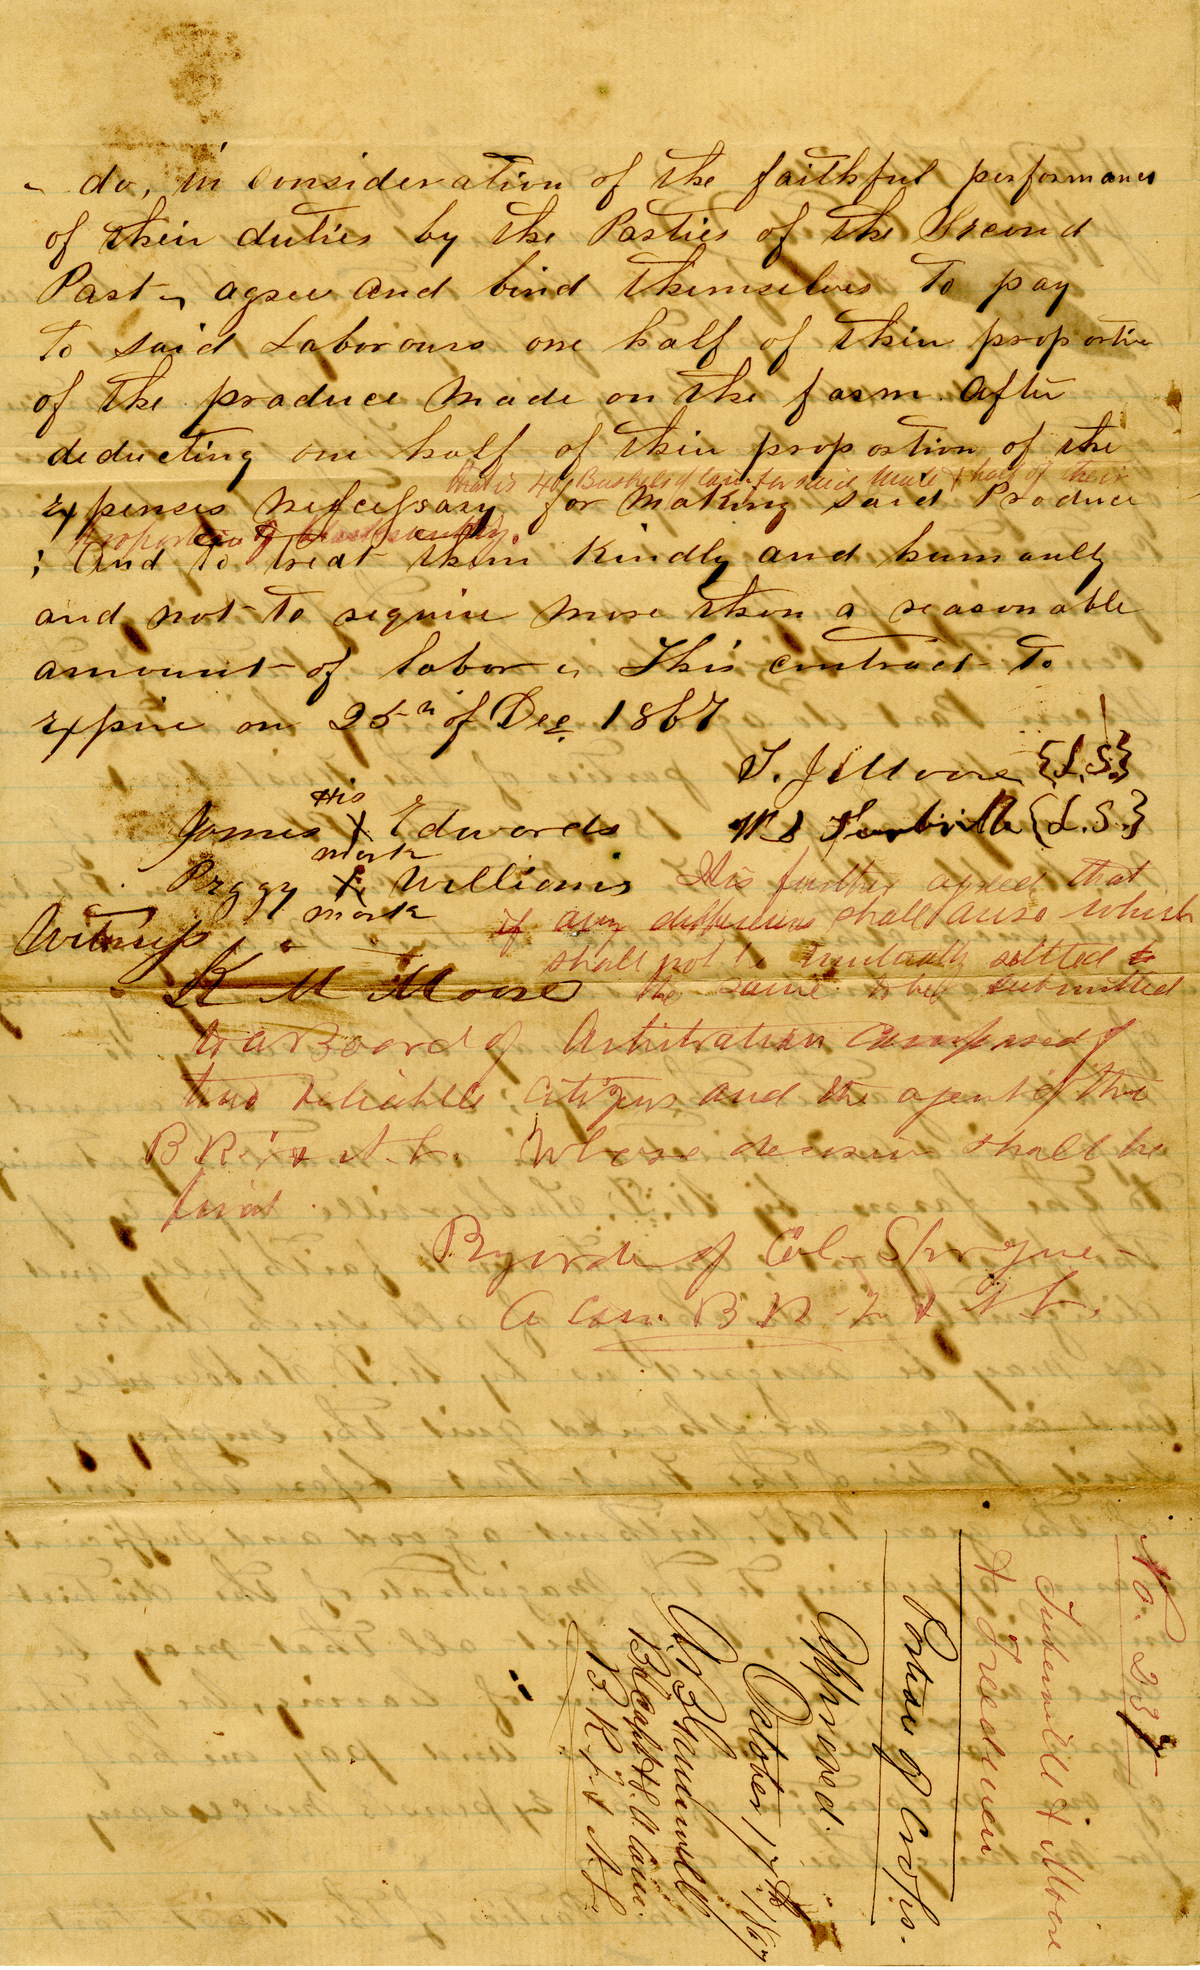 do, in consideration of the faithful performance
of their duties by the Parties of the Second
Part, agree and bind themselves to pay
to said Labourours one half of their proportion
of the produce made on the farm after
deducting one half of their proportion of the
that is 40 Bushels of Corn for said Mule & half of their
expenses nescessary for making said Produce
proportion of
; And to treat them kindly and humanly
and not to require more then a reasonable
amount of labor. This contract to
expire on 25th of Dec 1867
T. J. Moore {L.S.}
His
James X Edwards
mark
{L.S.}
Peggy X Williams
mark
Witness
K M Moore
It is further agreed that
if any differences shall arise which
shall not be mutually settled
the same to be submitted
to a Board of Arbitration Composed of
two reliable citizens and the agent of the
B R. F & A. L. Whose decision shall be
final.
By order of Col- Sprague-
A Com. B R F & A L.
No. 237
Turbeville & Moore
& Freedmen
Portion of Crops.
Approved.
October 17th 1867
B R F & A L